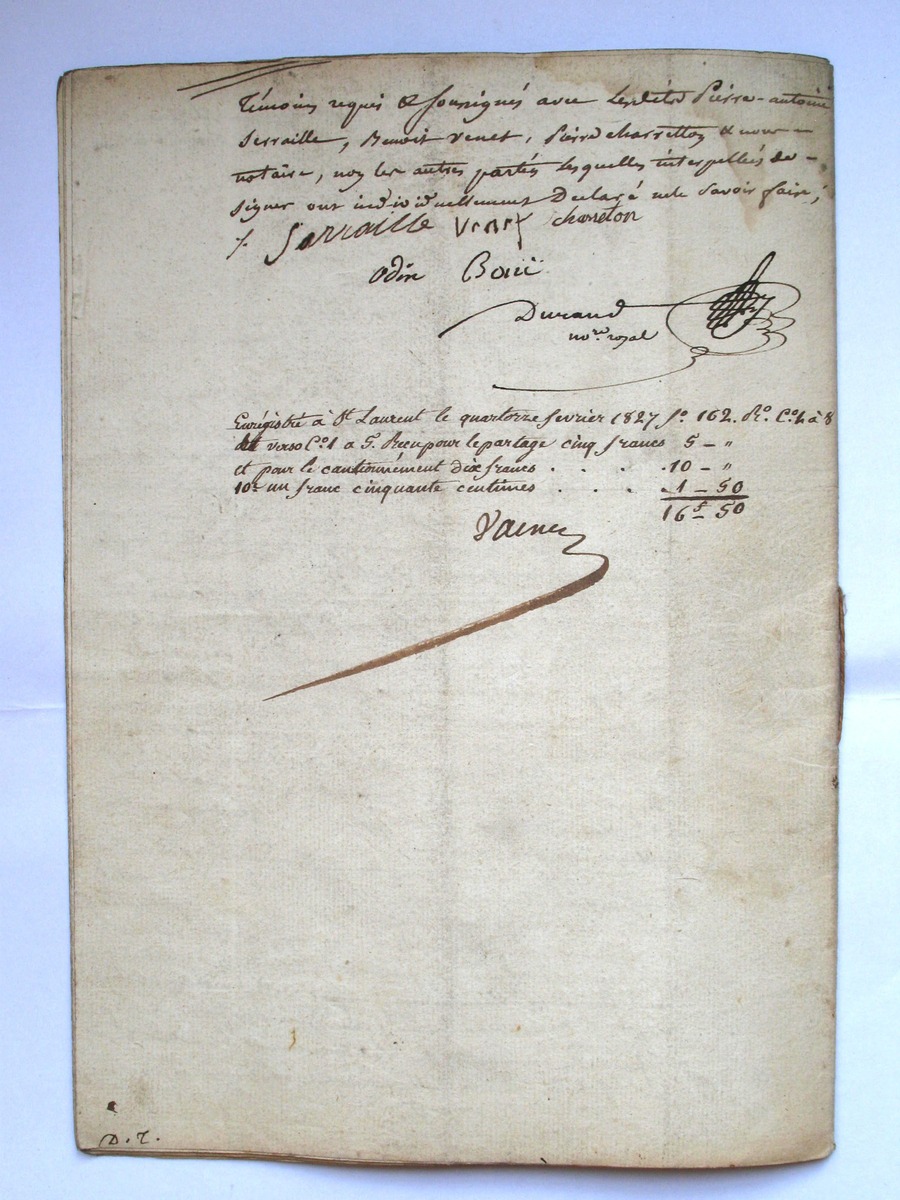 témoins requis & soussignés avec lesdits Pierre-antoine
Serraille, Benoit Venet, Pierre charretton & nous
notaire, non les autres parties lesquelles interpellées de
signer ont individuellement Declaré ne le savoir faire;
Serraille Venet charreton
odin Boui
Durand
no.re royal
Enrégistré à St Laurent le quartorze fevrier 1827 f.o 162. R.o C.es 4 à 8
verso C.e 1 a 5. Recu pour le partage cinq francs 5 - "
et pour le cautionnément dix francs . . . . 10 - "
10.e un franc cinquante centimes . . . 1 - 50
16 f - 50
D. T.